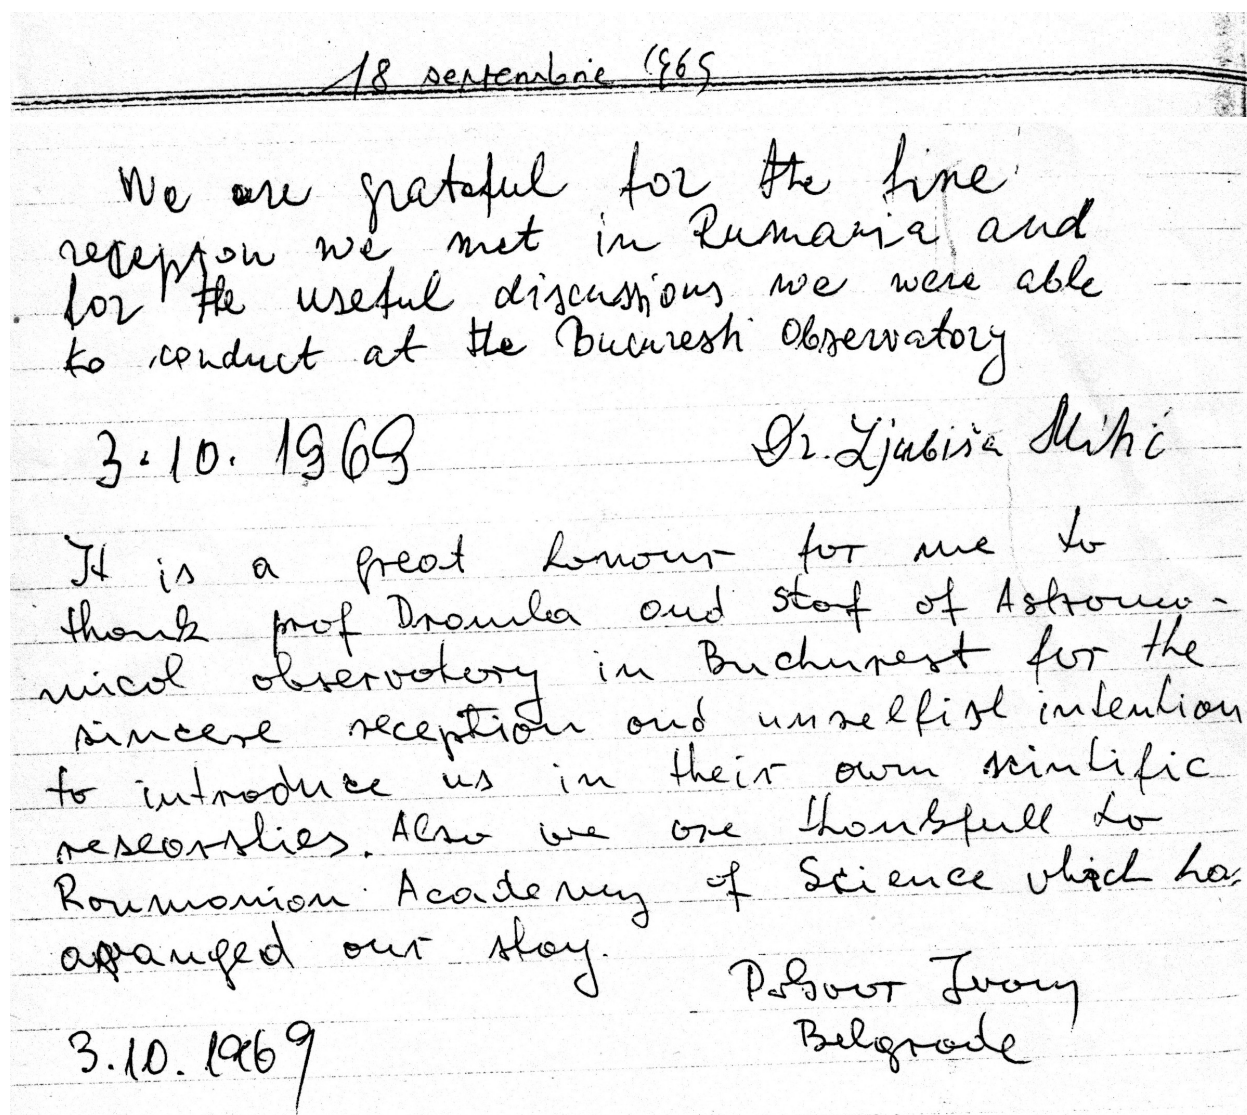 18 septembrie 1969
We are grateful for the fine
reception we met in Rumania and
for the useful discussions we were able
to conduct at the Bucuresti Observatory
3.10.1969 Dr. Ljubiša Mitić
It is a great honour for me to
thank prof Dramba and staf of Astrono-
mical observatory in Buchurest for the
sincere reception and unselfish intention
to introduce us in their own scintific
Also we are thankfull to
Roumanian Academy of Science which ha
arranged our stay.
3.10.1969
Belgrade